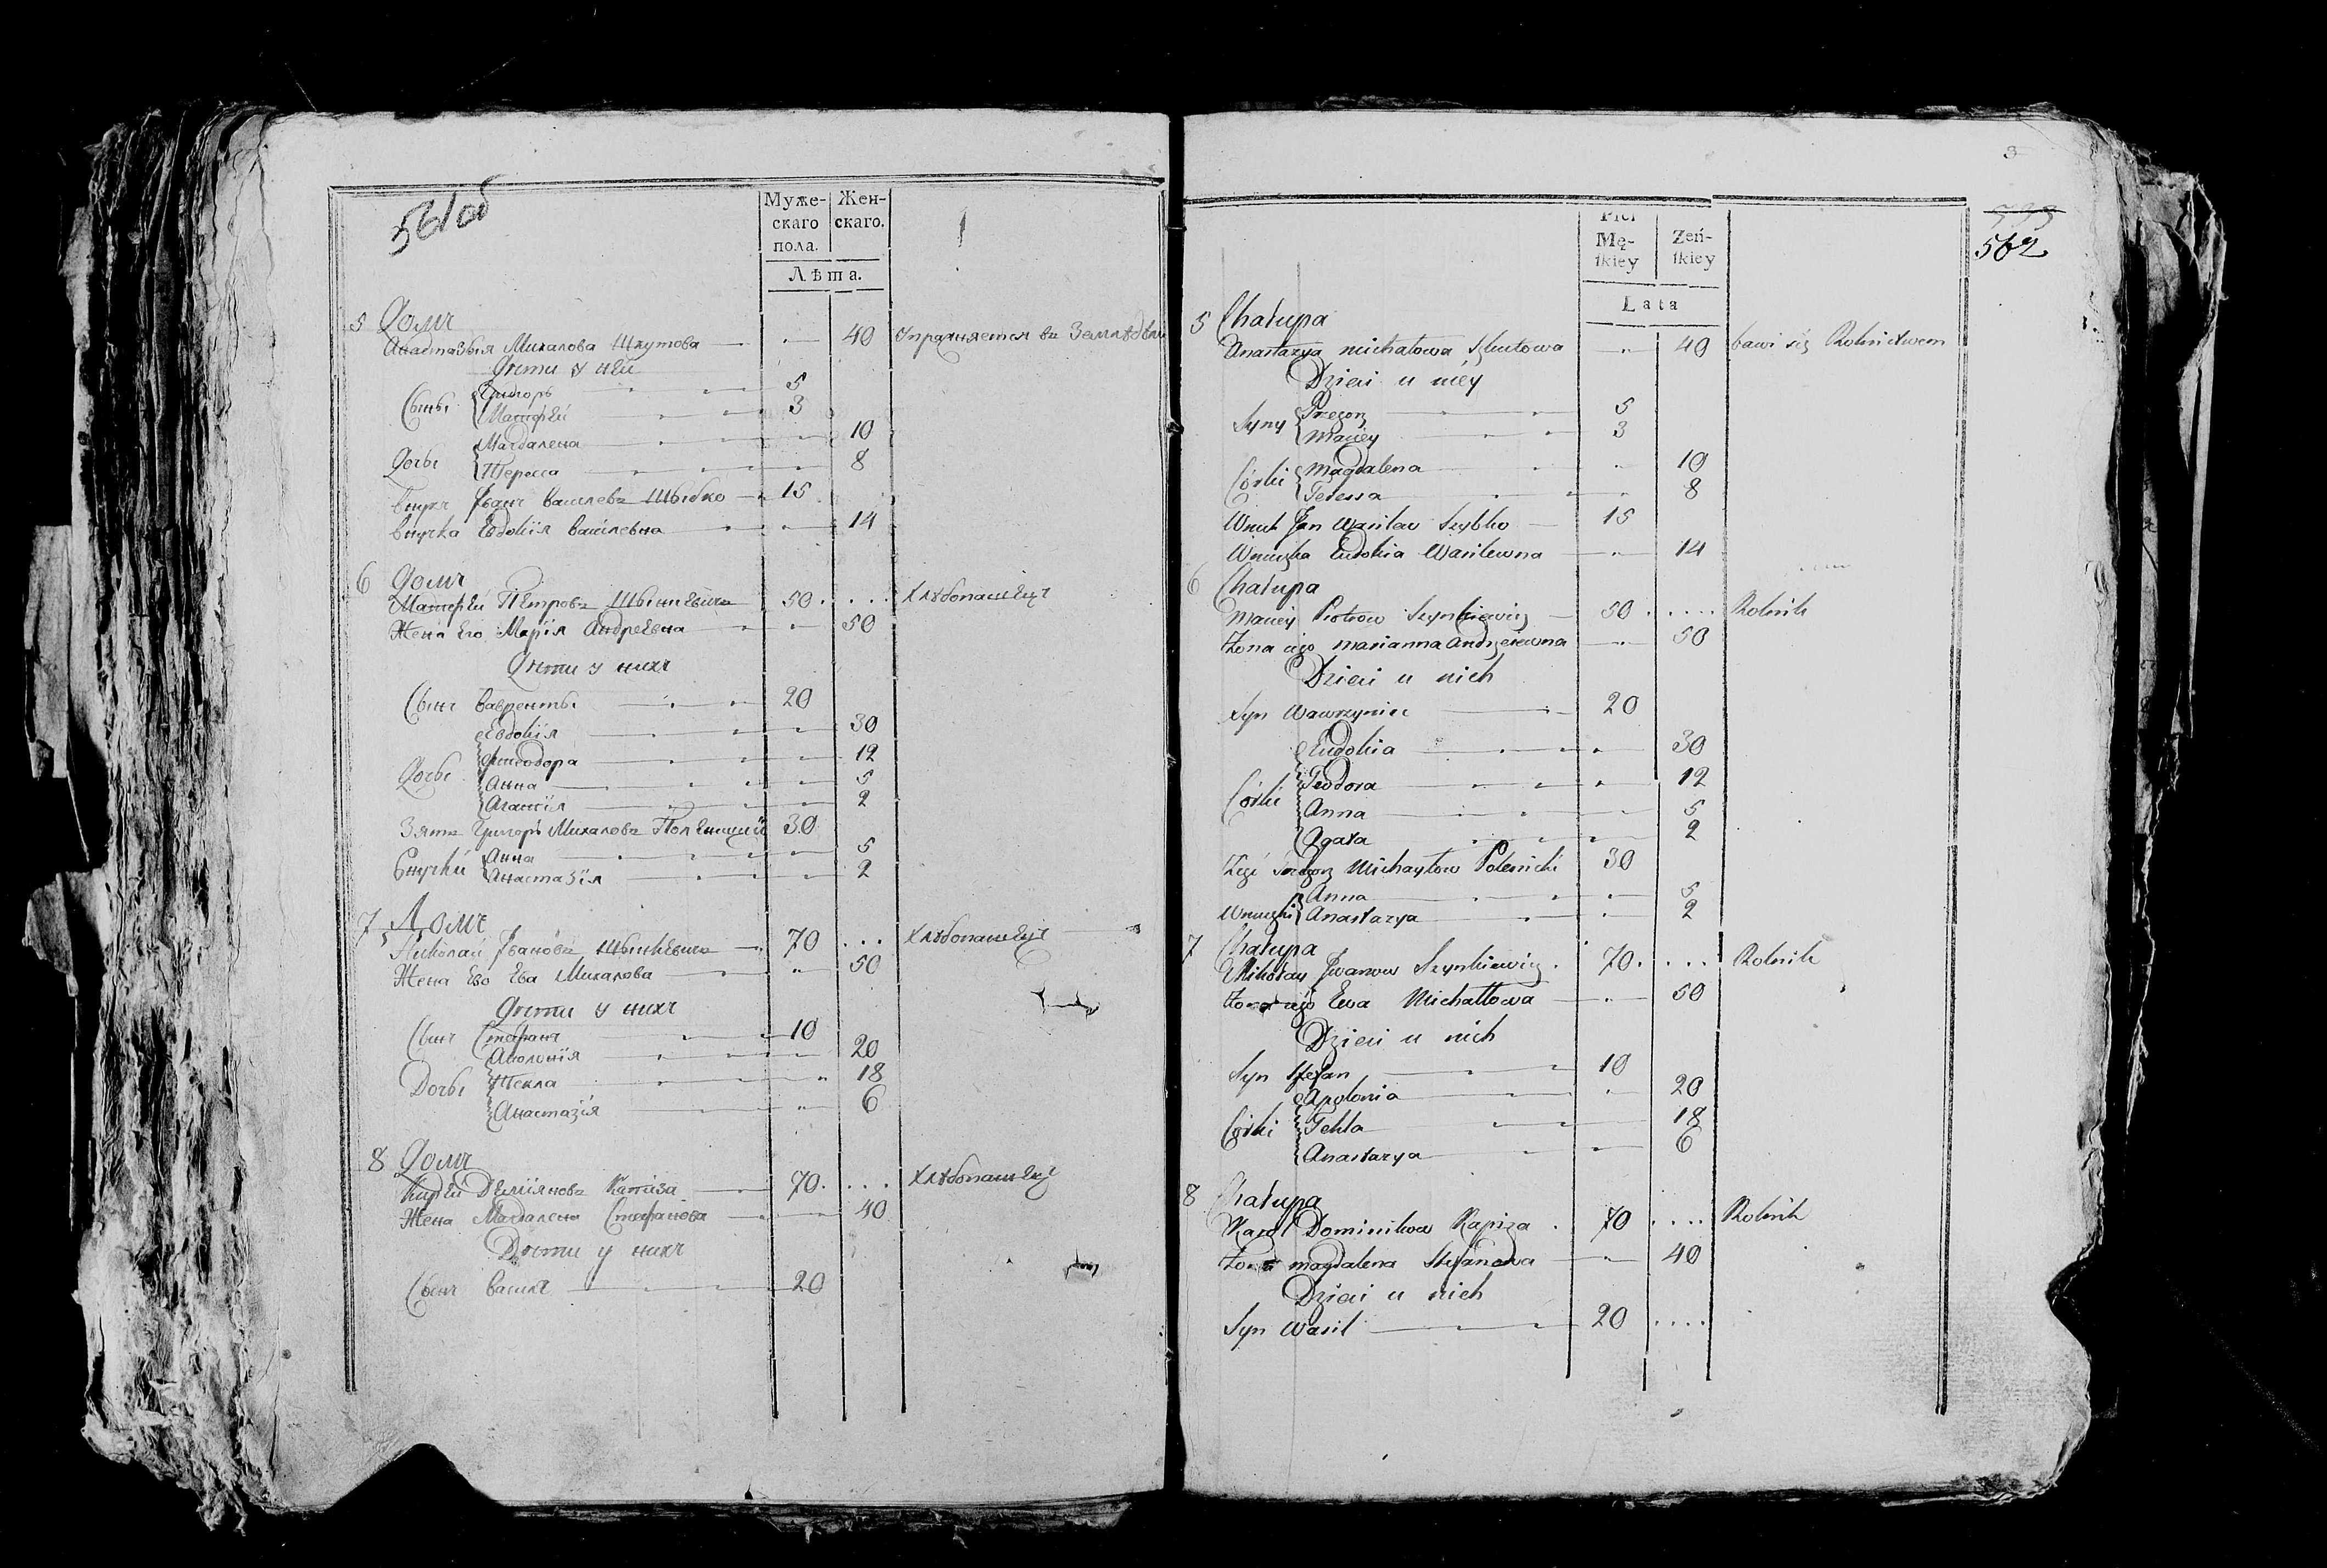 561об
Муже-
скаго
пола.
Жен-
скаго.
Лѣта.
5 Домъ
Анастазыя Михалова Шкутова 40 упражняется въ Земледѣлі
Дѣти у ней
Сыны Григоръ 5
Матфей 3
Магдалена 10
Дочы Тересса 8
Внукъ Іванъ Василевъ Шыбко 15
внучка Евдокія Васілевна 14
6 Домъ
Матфей Петровъ Шынкевичъ 50 Хлѣбопашецъ
Жена Его Марія Андреевна 50
Дѣти у нихъ
Сынъ Лавренты 20
Евдокія 30
Феодора 12
Дочы Анна 5
Агатія 2
Зять Григоръ Михаловъ 30
Анна 5
Внучки Анастазія 2
7 Домъ
Николай Івановъ Шынкевичъ 70 Хлѣбопашецъ
Жена Ево Ева Михалова 50
Дѣти у нихъ
Сынъ Стефанъ 10
Аполонія 20
Дочы Текла 18
Анастазія 6
8 Домъ
Деміяновъ Капиза 70 Хлѣбопашецъ
Жена Магдалена Стефанова 40
Дѣти у нихъ
Сынъ Василъ 20
3
562
Płci
Mę-
ſkiey
Żeń-
ſkiey
Lata
5 Chałupa
Anastazya Michałowa Szkutowa 40 bawi się Rolnictwem
Dzieci u niéy
Syny Grzegorz 5
Maciey 3
Córki Magdalena 10
Teressa 8
Wnuk Jan Wasilew Szybko 15
Wnuczka Eudokia Wasilewna 14
6 Chałupa
Maciey Piotrow Szynkiewicz 50 Rolnik
Żona iego Marianna Andrzeiewna 50
Dzieci u nich
Syn Wawrzyniec 20
Eudokia 30
Teodora 12
Córki Anna 5
Agata 2
Zięć Grzegorz Michayłow 30
Anna 5
Wnuczki Anastazya 2
7 Chałupa
Mikołay Iwanow Szynkiewicz 70 Rolnik
Żona iego Ewa Michałłowa 50
Dzieci u nich
Syn Stefan 10
Apolonia 20
Córki Tekla 18
Anastazya 6
8 Chałupa
Karol Dominikow Kapiza 70 Rolnik
Żona Magdalena Stefanowa 40
Dzieci u nich
Syn Wasil 20